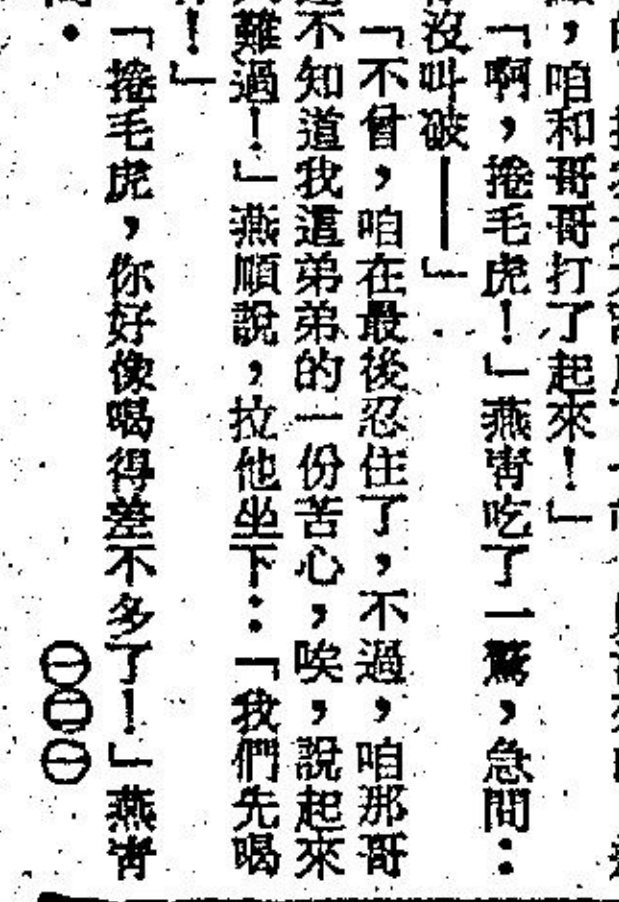 ，咱和哥哥打了起來！」
「啊，捲毛虎！」燕青吃了一驚，急問：
沒叫破——」
「不曾，咱在最後忍住了，不過，咱那哥
不知道我這弟弟的一份苦心，唉，說起來
難過！」燕順說，拉他坐下：「我們先喝
！」
「捲毛虎，你好像喝得差不多了！」燕青
。
㊀㊁㊀